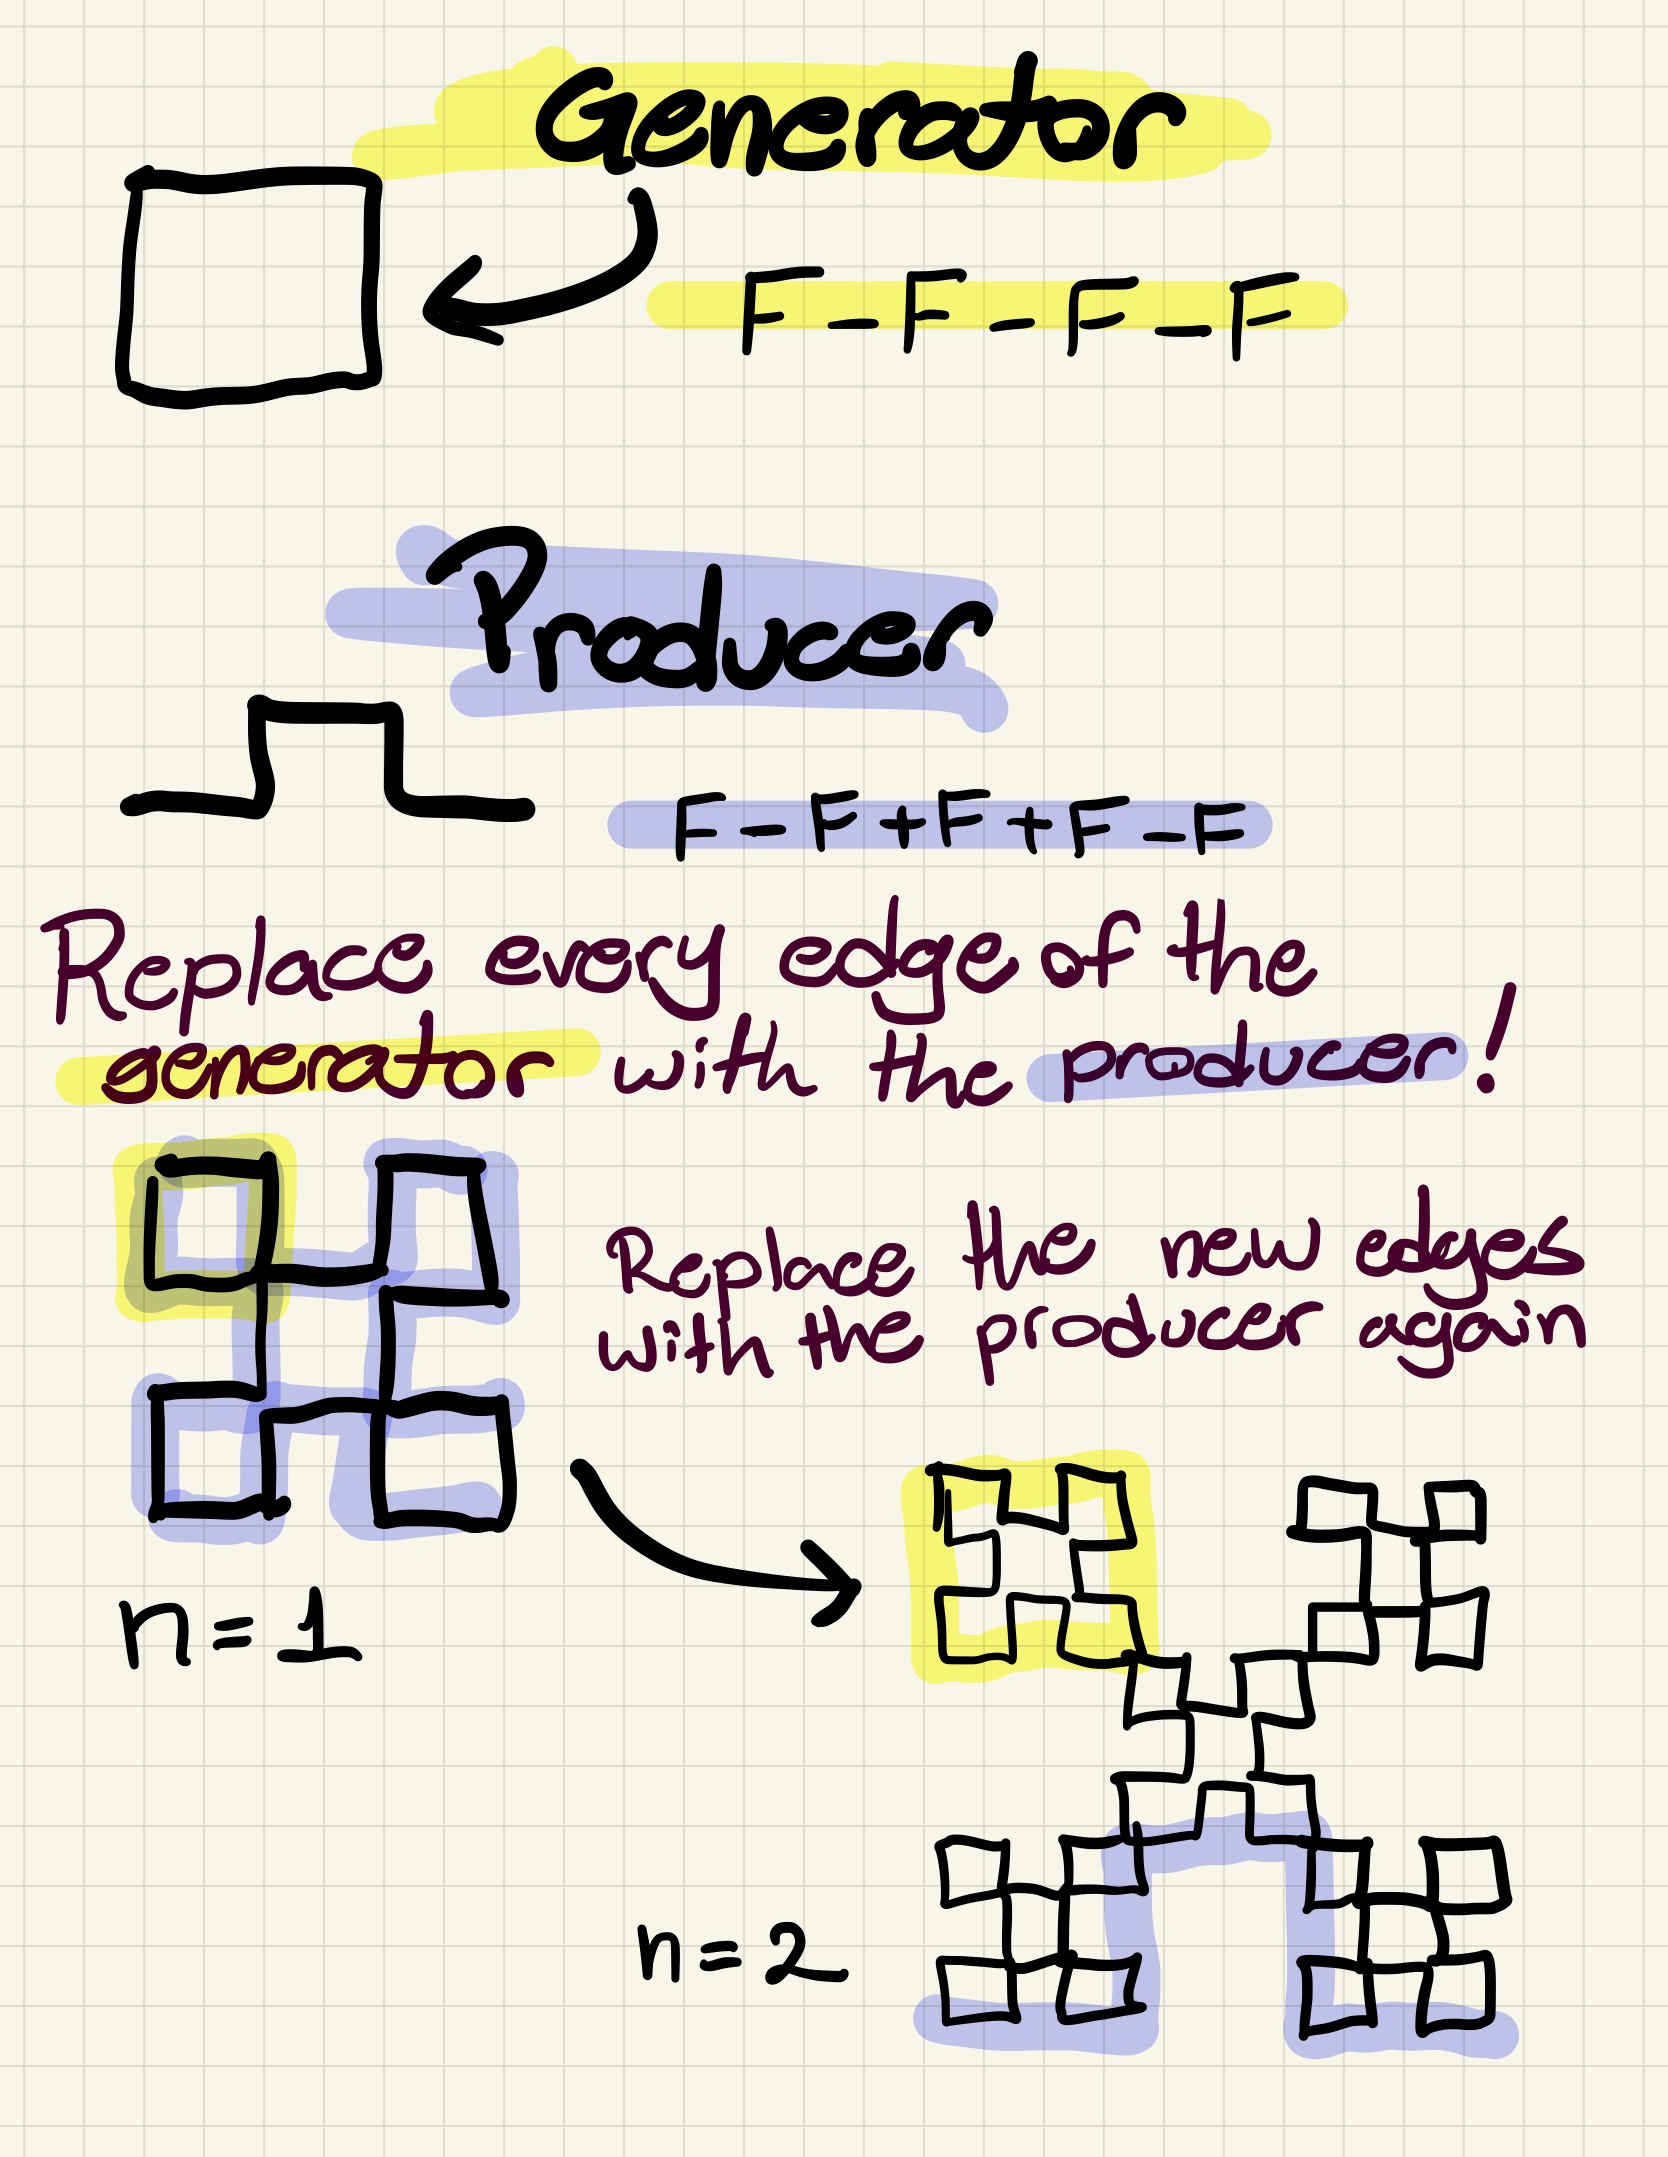 Generator
F-F-F-F
Producer
F-F+F+F-F
Replace every edge of the
generator with the producer!
Replace the new edges
with the producer again
n=1
n=2